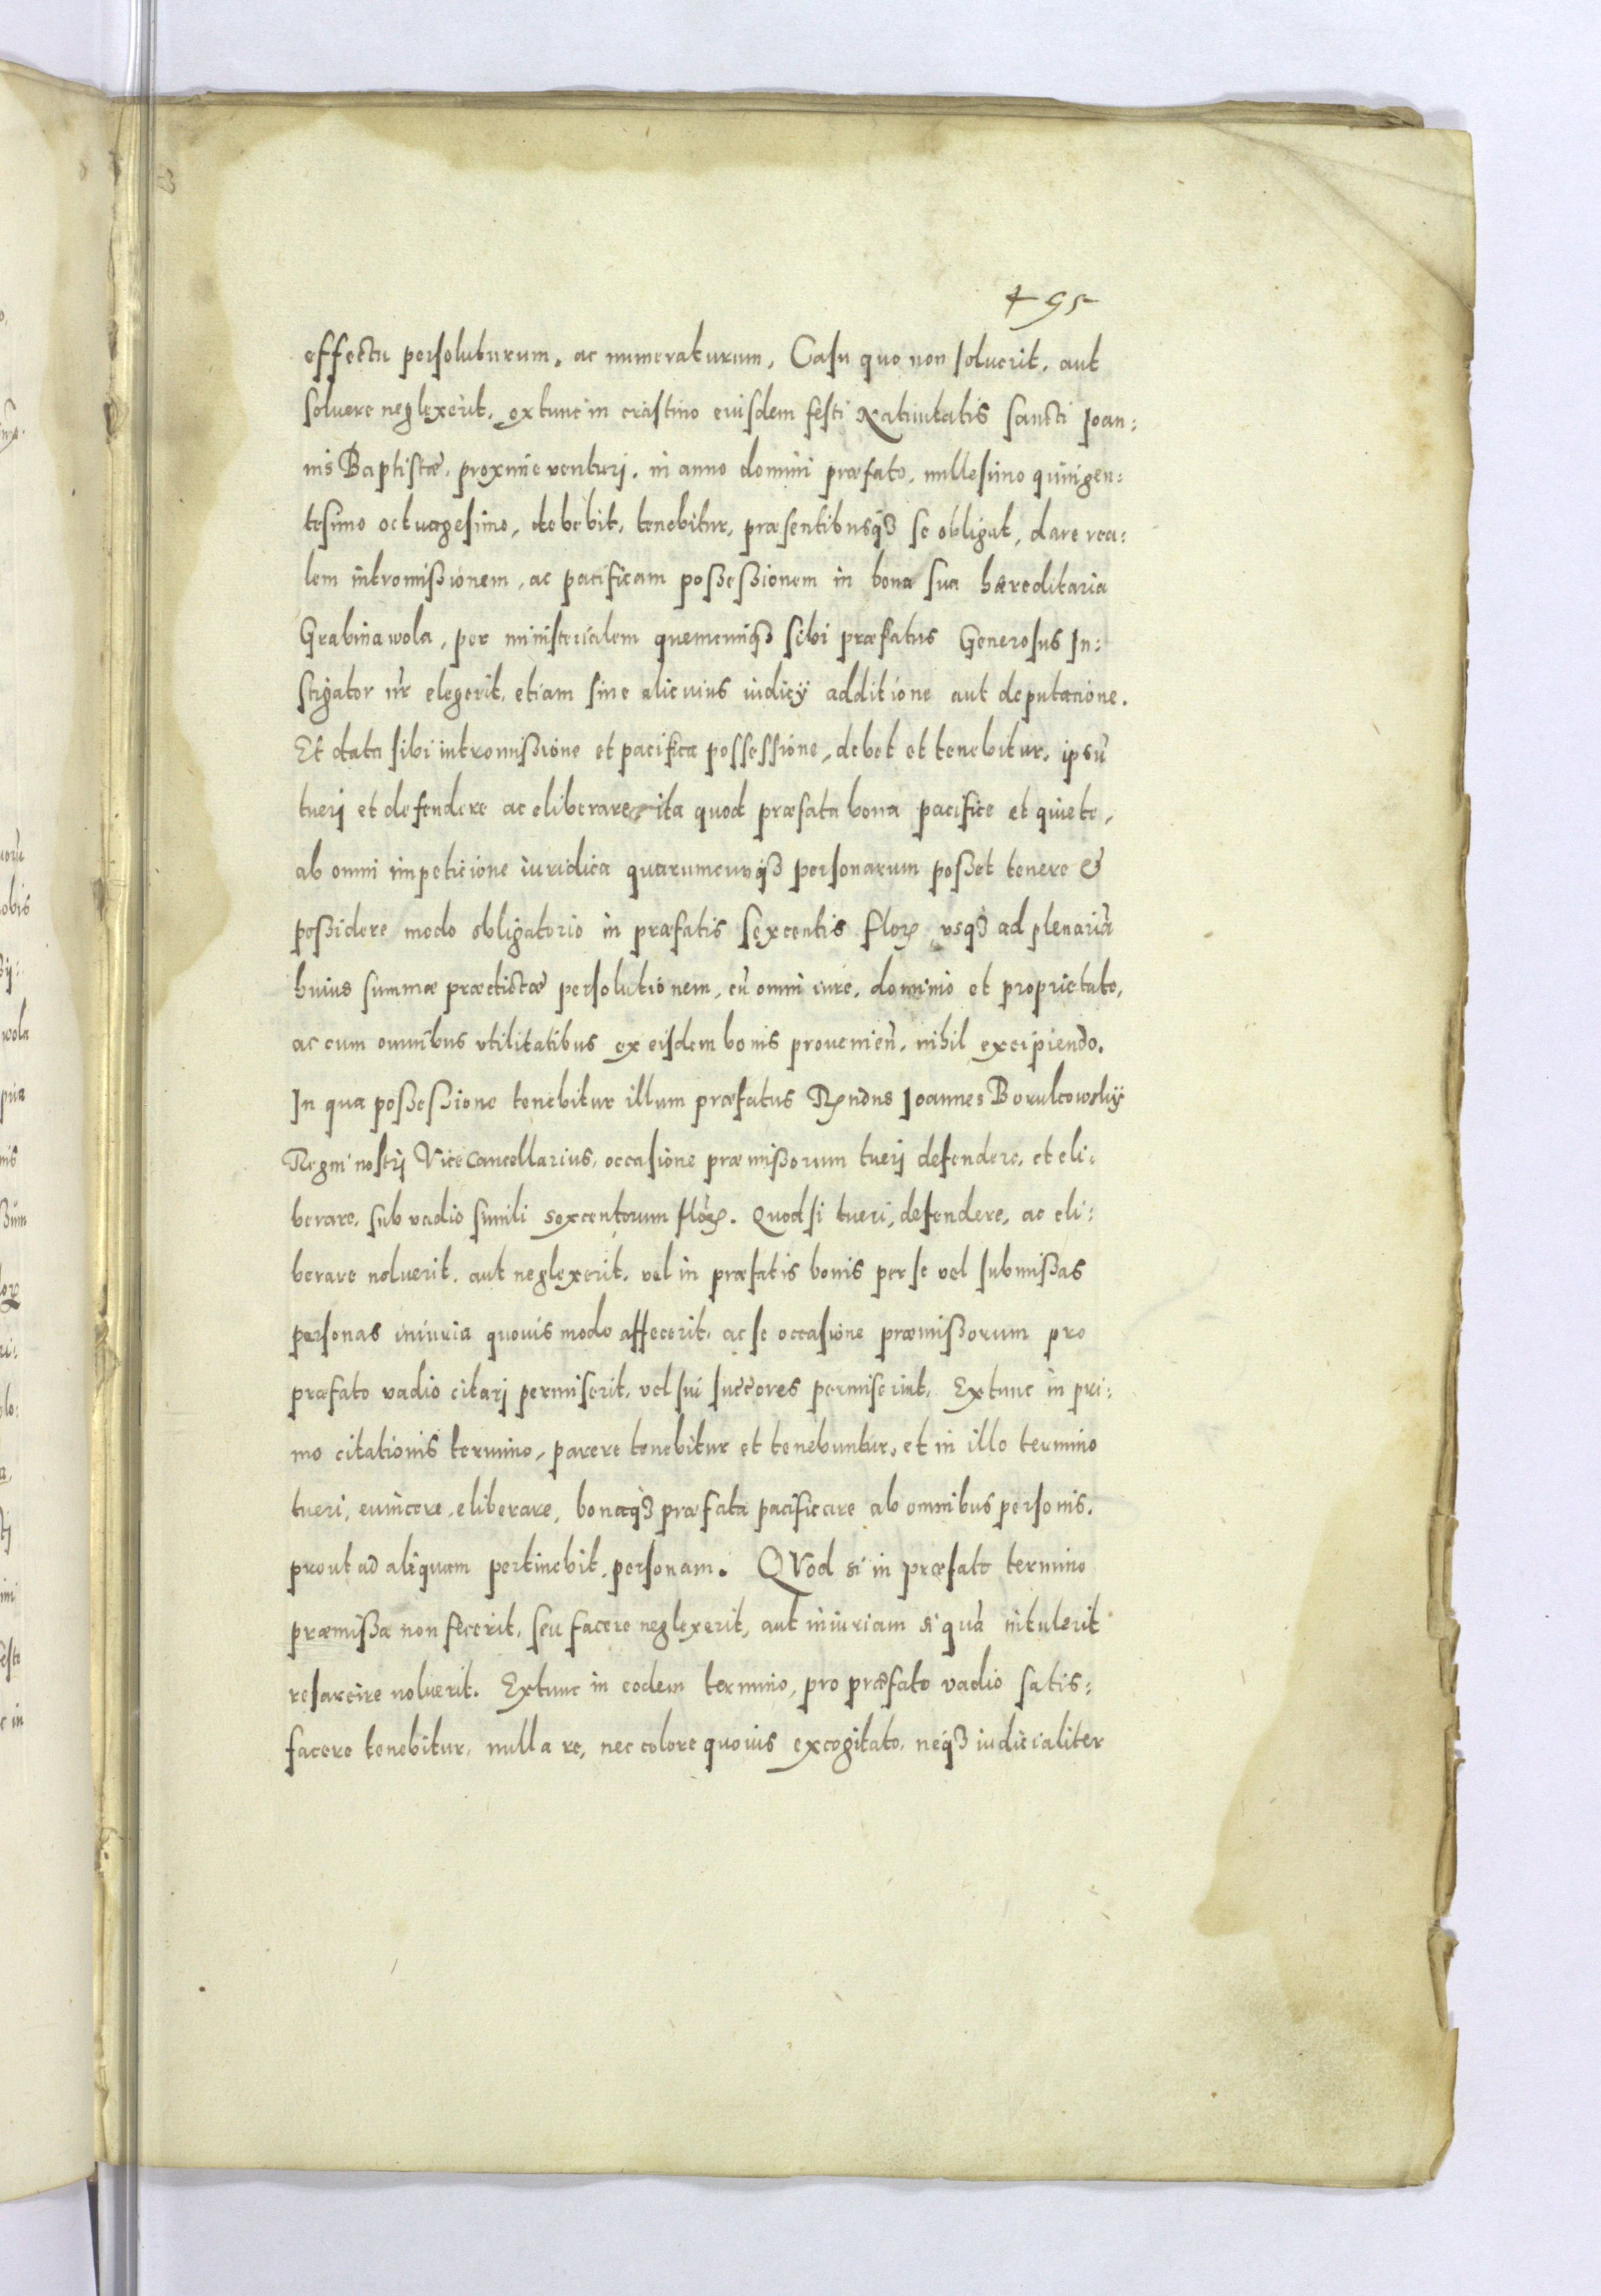 495
effectu persoluturum, ac numeraturum, Casu quo non soluerit, aut
soluere neglexerit, extunc in crastino eiusdem festi Natiuitatis Sancti Joan:
nis Baptistæ, proxime venturj, in anno domini præfato, millesimo quingen:
tesimo octuagesimo, debebit, tenebitur, præsentibusq3 se obligat, dare rea:
lem intromißionem, ac pacificam poßeßionem in bona sua hæreditaria
Grabinawola, per ministerialem quemcunq3 sibi præfatus Generosus In:
stigator nr̃ elegerit, etiam sine alicuius iudicÿ additione aut deputatione.
Et data sibi intromißione et pacifica possessione, debet et tenebitur, ipsũ
tuerj et defendere ac eliberare ita quod præfata bona pacifice et quiete,
ab omni impeticione iuridica quarumcunq3 personarum poßet tenere &
poßidere modo obligatorio in præfatis sexcentis flor, vsq3 ad plenariã
huius summæ prædictæ persolutionem, cũ omni iure, dominio et proprietate,
ac cum omnibus vtilitatibus ex eisdem bonis prouenien̄, nihil excipiendo.
In qua poßeßione tenebitur illum præfatus Rndns Joannes Borukowskÿ
Regni nostrj Vicecancellarius, occasione præmißorum tuerj defendere, et eli:
berare, sub vadio simili sexcentorum flor. Quod si tueri, defendere, ac eli:
berare noluerit, aut neglexerit, vel in præfatis bonis per se vel submißas
personas iniuria quouis modo affecerit, ac se occasione præmißorum pro
præfato vadio citarj permiserit, vel sui succores permiserint, Extunc in pri:
mo citationis termino, parere tenebitur et tenebuntur, et in illo termino
tueri, euincere, eliberare, bonaq3 præfata pacificare ab omnibus personis,
prout ad aliquam pertinebit, personam. QVod si in præfato termino
præmißa non fecerit, seu facere neglexerit, aut iniuriam si quã intulerit
resarcire noluerit. Extunc in eodem termino, pro præfato vadio satis:
facere tenebitur, nulla re, nec colore quouis excogitato, neq3 iudicialiter